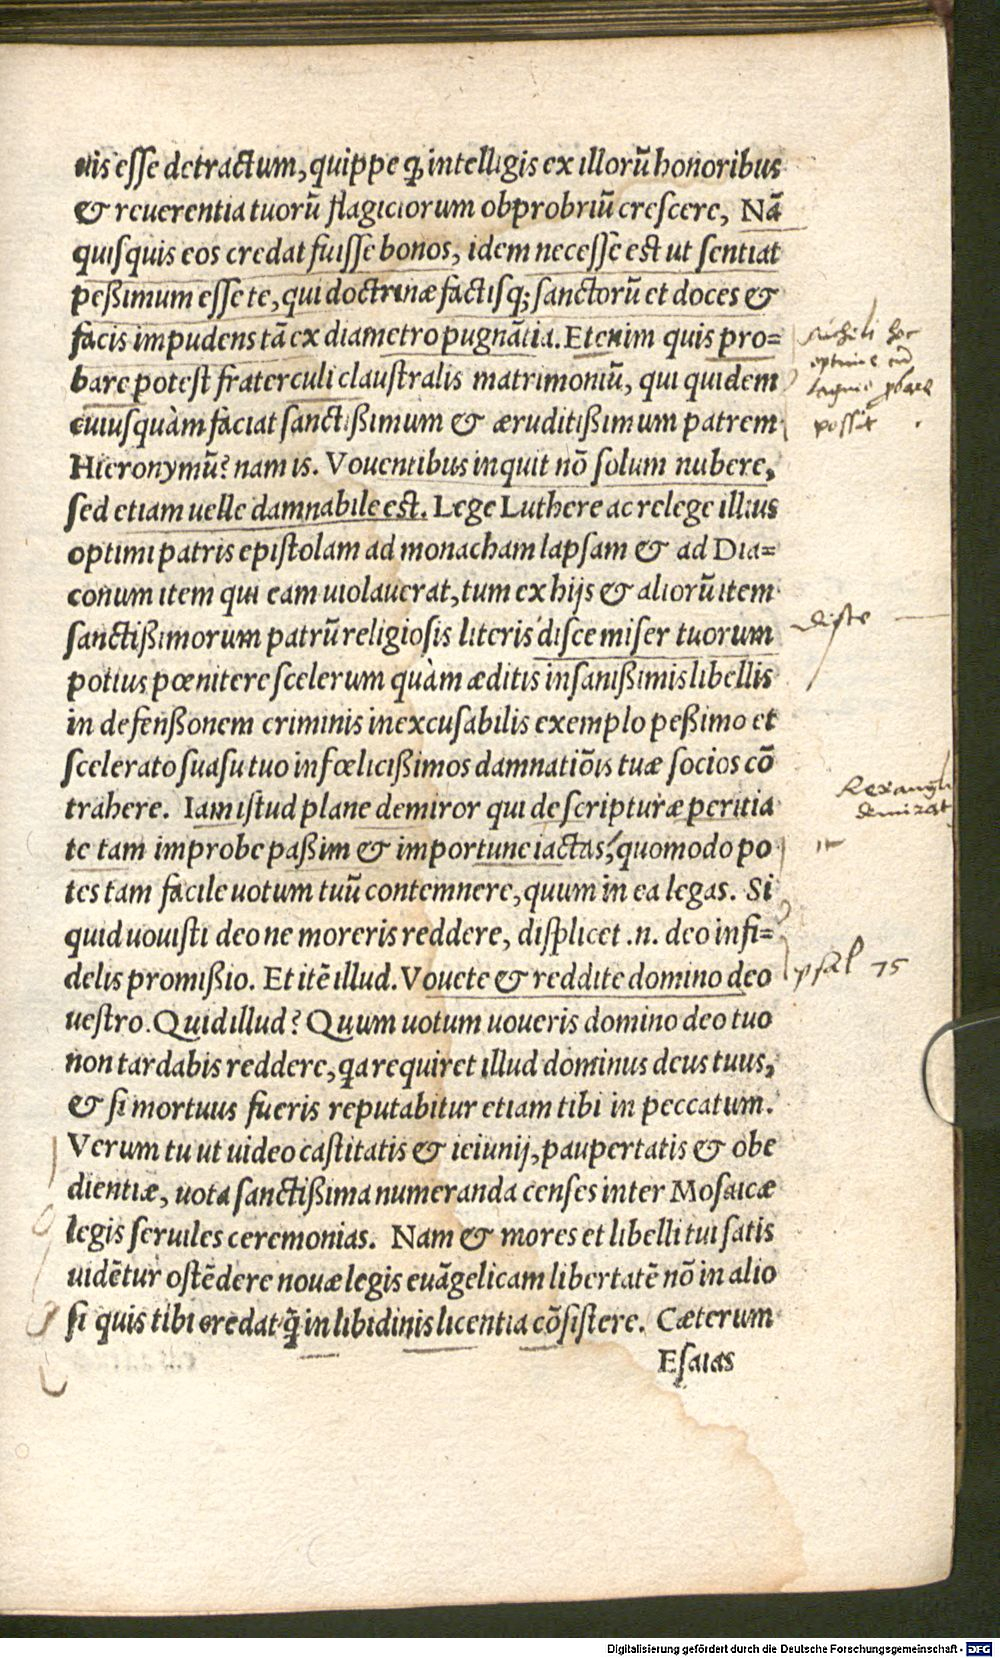 uis esse detractum, quippe ꝙ intelligis ex illorũ honoribus
& reuerentia tuorũ flagiciorum obprobriũ crescere, Nã
quisquis eos credat fuisse bonos, idem necesse est ut sentiat
peßimum esse te, qui doctrinæ factisq; sanctorũ et doces &
facis impudens tã ex diametro pugnãtia. Etenim quis pro=
bare potest fraterculi claustralis matrimoniũ, qui quidem
cuiusquàm faciat sanctißimum & æruditißimum patrem
Hieronymũ? nam is. Vouentibus inquit nõ solum nubere,
sed etiam uelle damnabile est. Lege Luthere ac relege illius
optimi patris epistolam ad monacham lapsam & ad Dia=
conum item qui eam uiolauerat, tum ex hijs & aliorũ item
sanctißimorum patrũ religiosis literis disce miser tuorum
potius pœnitere scelerum quàm æditis insanißimis libellis
in defenßonem criminis inexcusabilis exemplo peßimo et
scelerato suasu tuo infœlicißimos damnatiõis tuæ socios cõ
trahere. Iam istud plane demiror qui de scripturæ peritia
te tam improbe paßim & importune iactas, quomodo po
tes tam facile uotum tuũ contemnere, quum in ea legas. Si
quid uouisti deo ne moreris reddere, displicet .n. deo infi=
delis promißio. Et itẽ illud. Vouete & reddite domino deo
uestro. Quid illud? Quum uotum uoueris domino deo tuo
non tardabis reddere, qa requiret illud dominus deus tuus,
& si mortuus fueris reputabitur etiam tibi in peccatum.
Verum tu ut uideo castitatis & ieiunij, paupertatis & obe
dientiæ, uota sanctißima numeranda censes inter Mosaicæ
legis seruiles ceremonias. Nam & mores et libelli tui satis
uidẽtur ostẽdere nouæ legis euãgelicam libertatẽ nõ in alio
si quis tibi credat q̃ in libidinis licentia cõsistere. Cæterum
Esaias
possit
Rex angli
demirat
psal 75
Digitalisierung gefördert durch die Deutsche Forschungsgemeinschaft - DFG